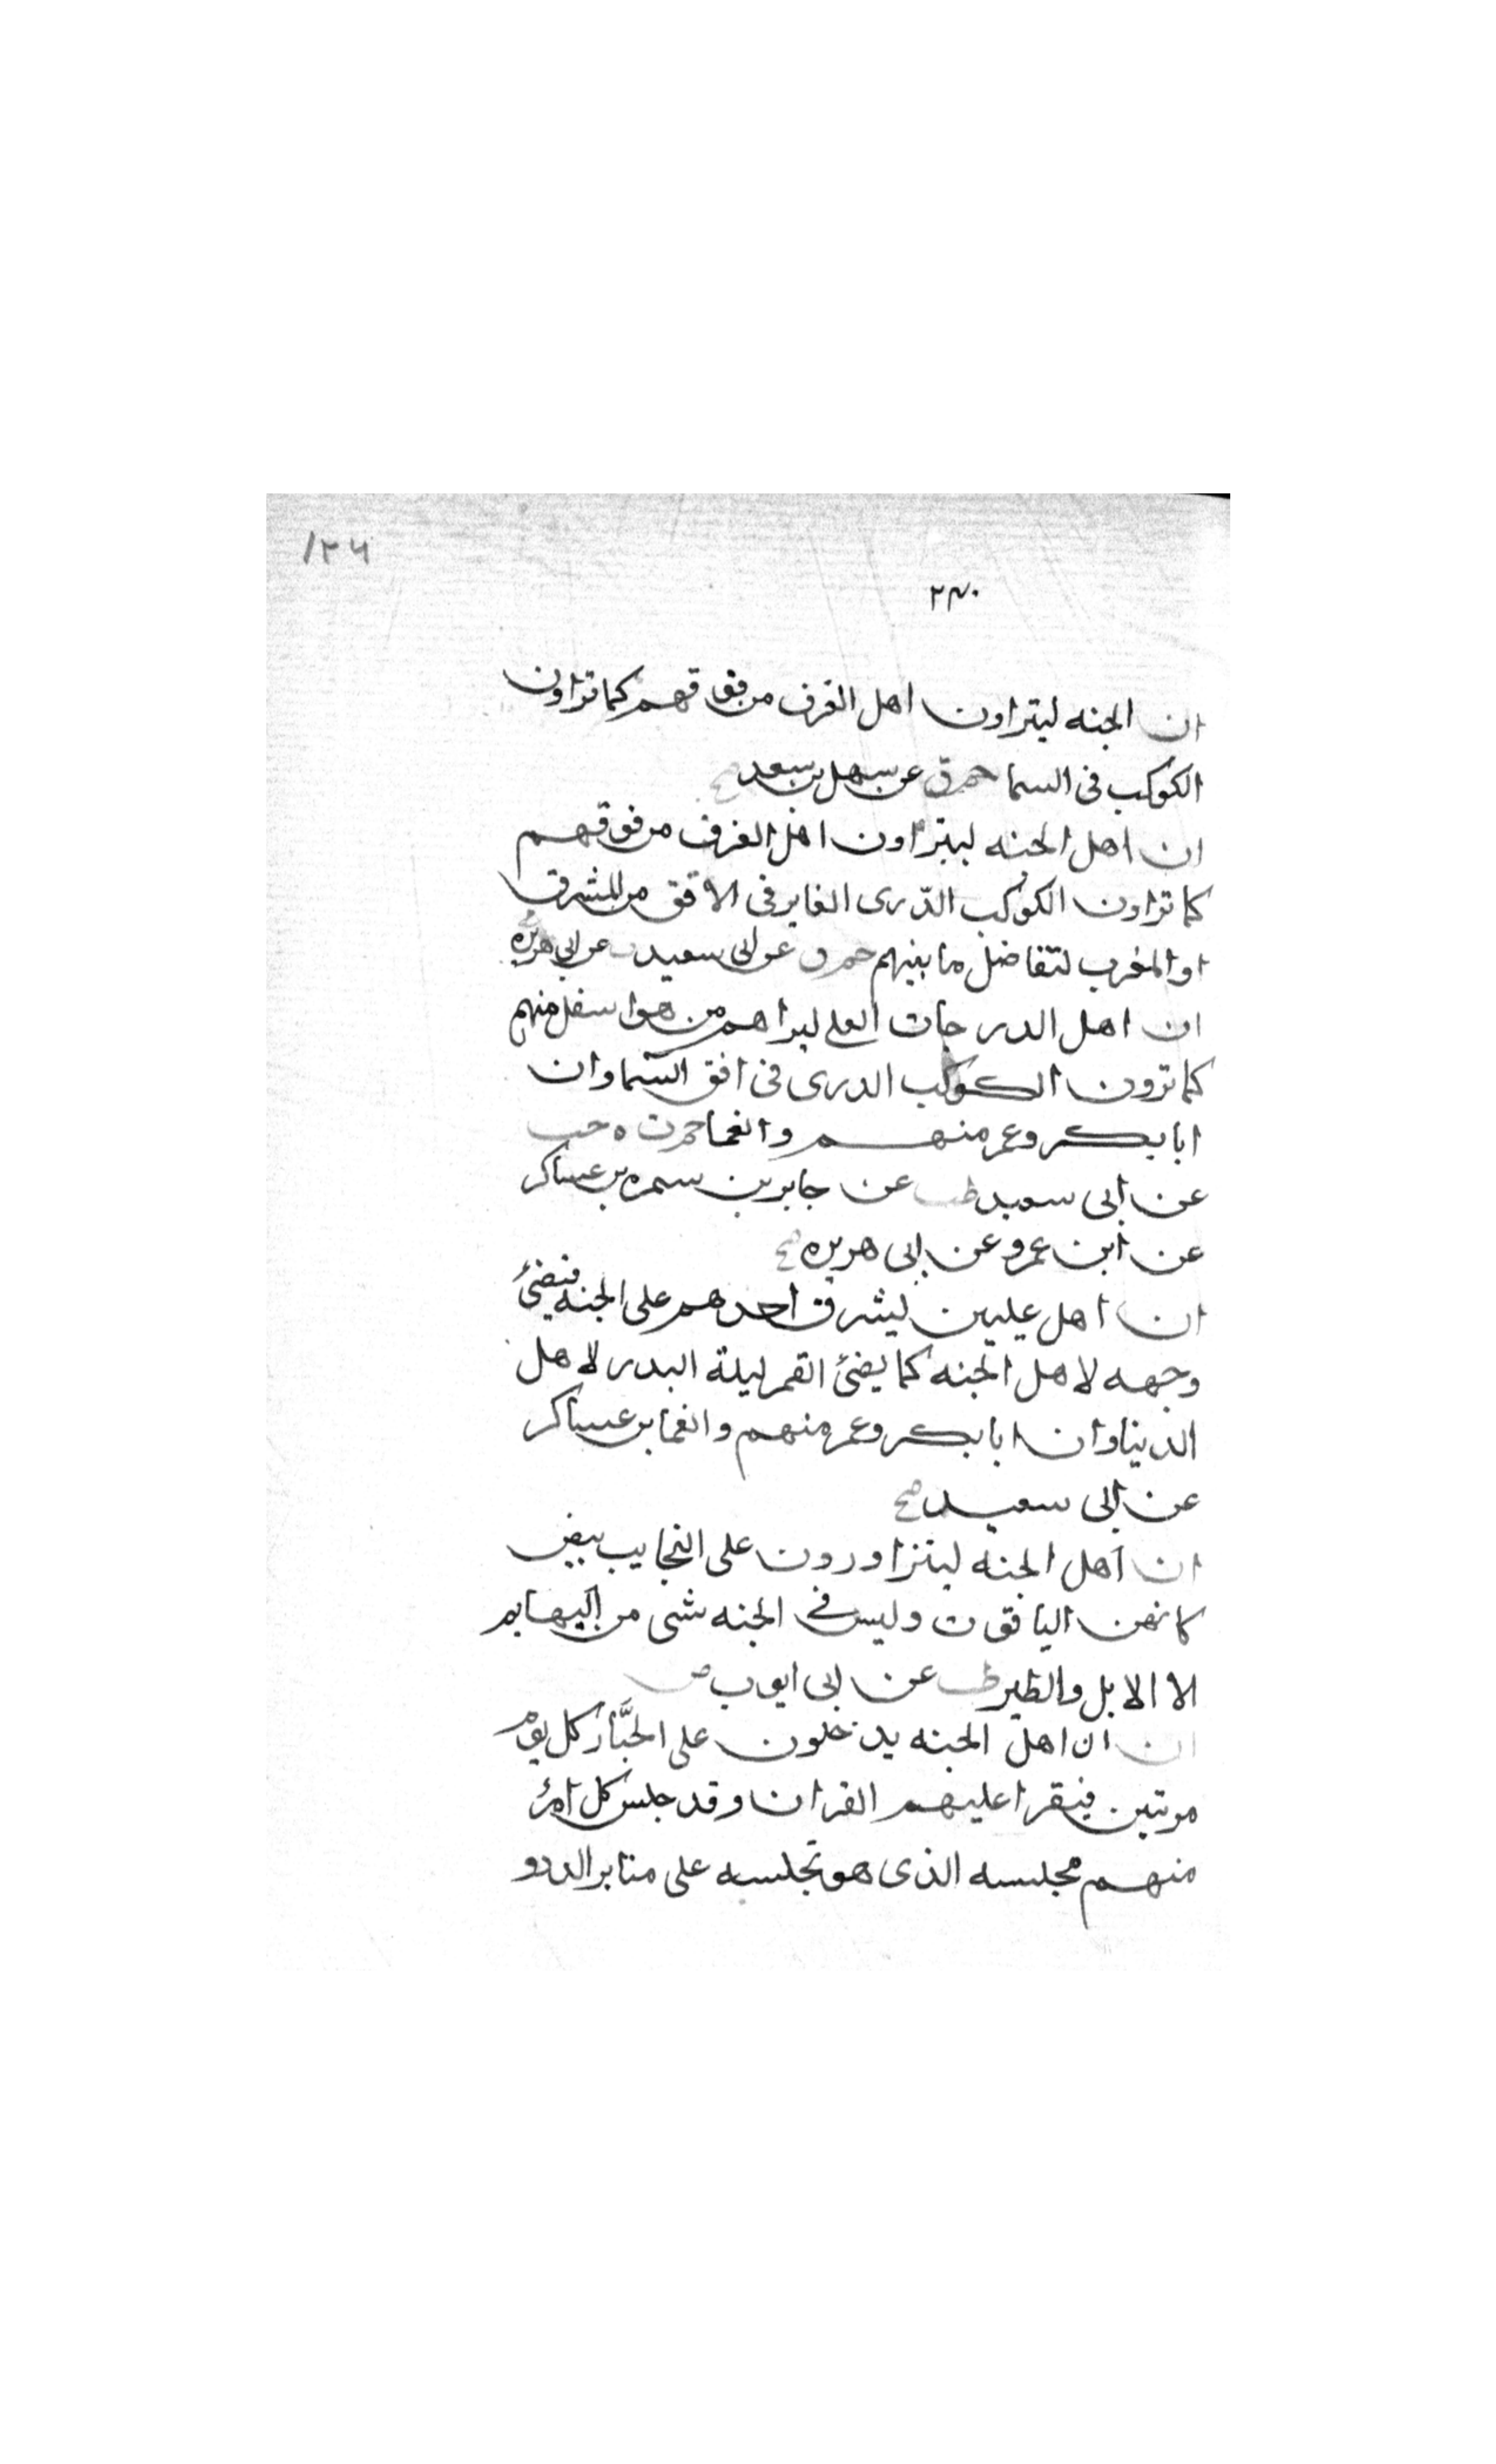 ١٢٦
٢٣٠
ان الجنه ليتراون اهل الغرف من فوقهم كما تراون
الكوكب في السما حم ق عن سهل بن سعد صح
ان اهل الجنه ليتراون اهل الغرف من فوقهم
كما تراون الكوكب الدّرى الغابر فى الافق من المشرق
او المغرب لتفاضل ما بينهم حم ق عن ابى سعيد ت عن ابى هريره
ان اهل الدرجات العلى ليراهم من هو اسفل منهم
كما ترون الكوكب الدرى فى افق السما وان
ابا بكر وعمر منهم وانعما حم ت ه حب
عن ابى سعيد طب عن جابر بن سمره بن عساكر
عن ابن عمرو عن ابى هريره صح
ان اهل عليين ليشرف احدهم على الجنه فيضئ
وجهه لاهل الجنه كما يضئ القمر ليلة البدر لاهل
الدنيا وان ابا بكر وعمر منهم وانعما بن عساكر
عن ابى سعيد صح
ان اهل الجنه ليتزاورون على النجايب بيض
كانهن الياقوت وليس فى الجنه شى من البهايم
الا الابل والطير طب عن ابى ايوب ض
ان ان اهل الجنه يدخلون على الجبَّار كل يوم
مرتين فيقرا عليهم القران وقد جلس كل امرئ
منهم مجلسه الذى هو مجلسه على منابر الدر و